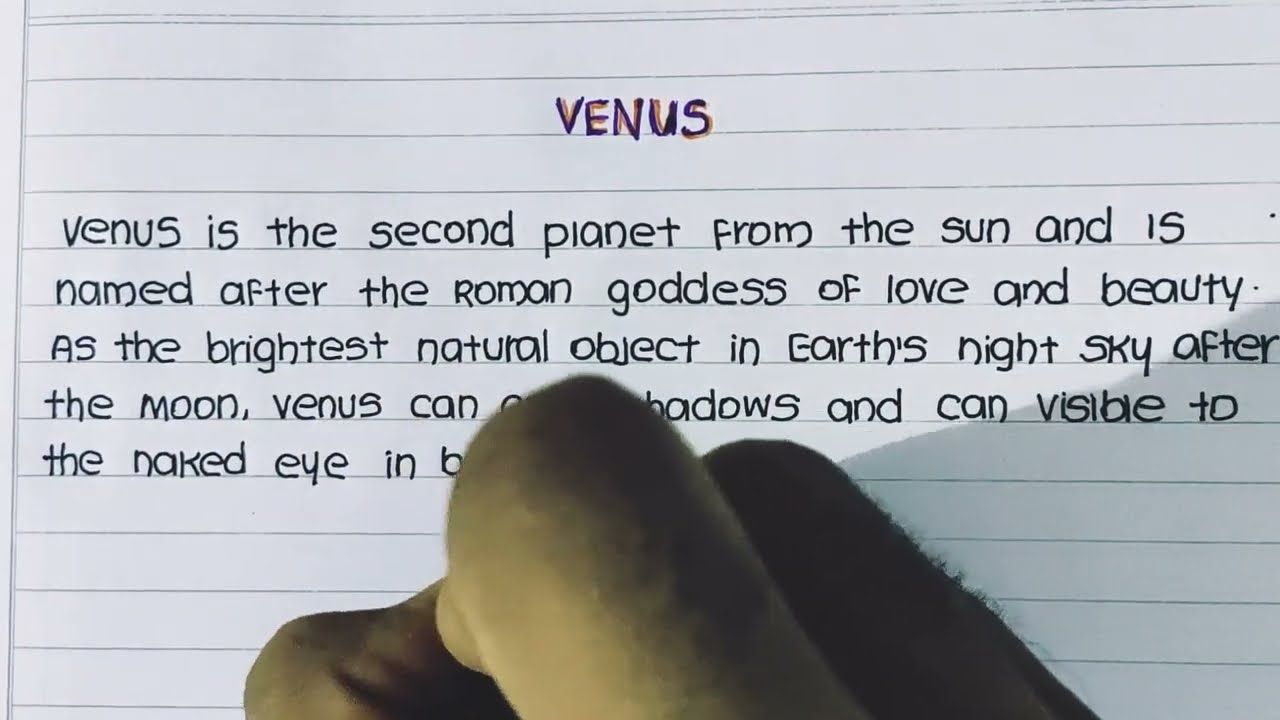 VENUS
Venus is the second planet from the sun and is
named after the Roman goddess of love and beauty.
As the brightest natural object in Earth's night sky after
the moon, venus can and can visible to
the naked eye in